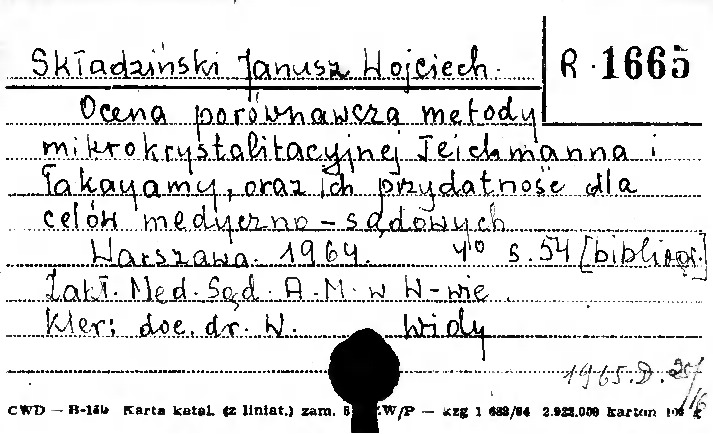 Składziński Janusz Wojciech. R. 1665
Ocena porównawcza metody
mikrokrystalitacyjnej Teichmanna i
Takayamy, oraz ich przydatność dla
celów medyczno-sądowych
Warszawa. 1964. 4° s. 54 [bibliogr.]
Zakł. Med. Sąd. A.M. w W-wie.
Kier: doc. dr. W. Widy
1965.D. 25/16
CWD — B-18b Karta katal. (z liniat.) zam. ZW/P — kzg 1 682/64 2.922.000 kartan